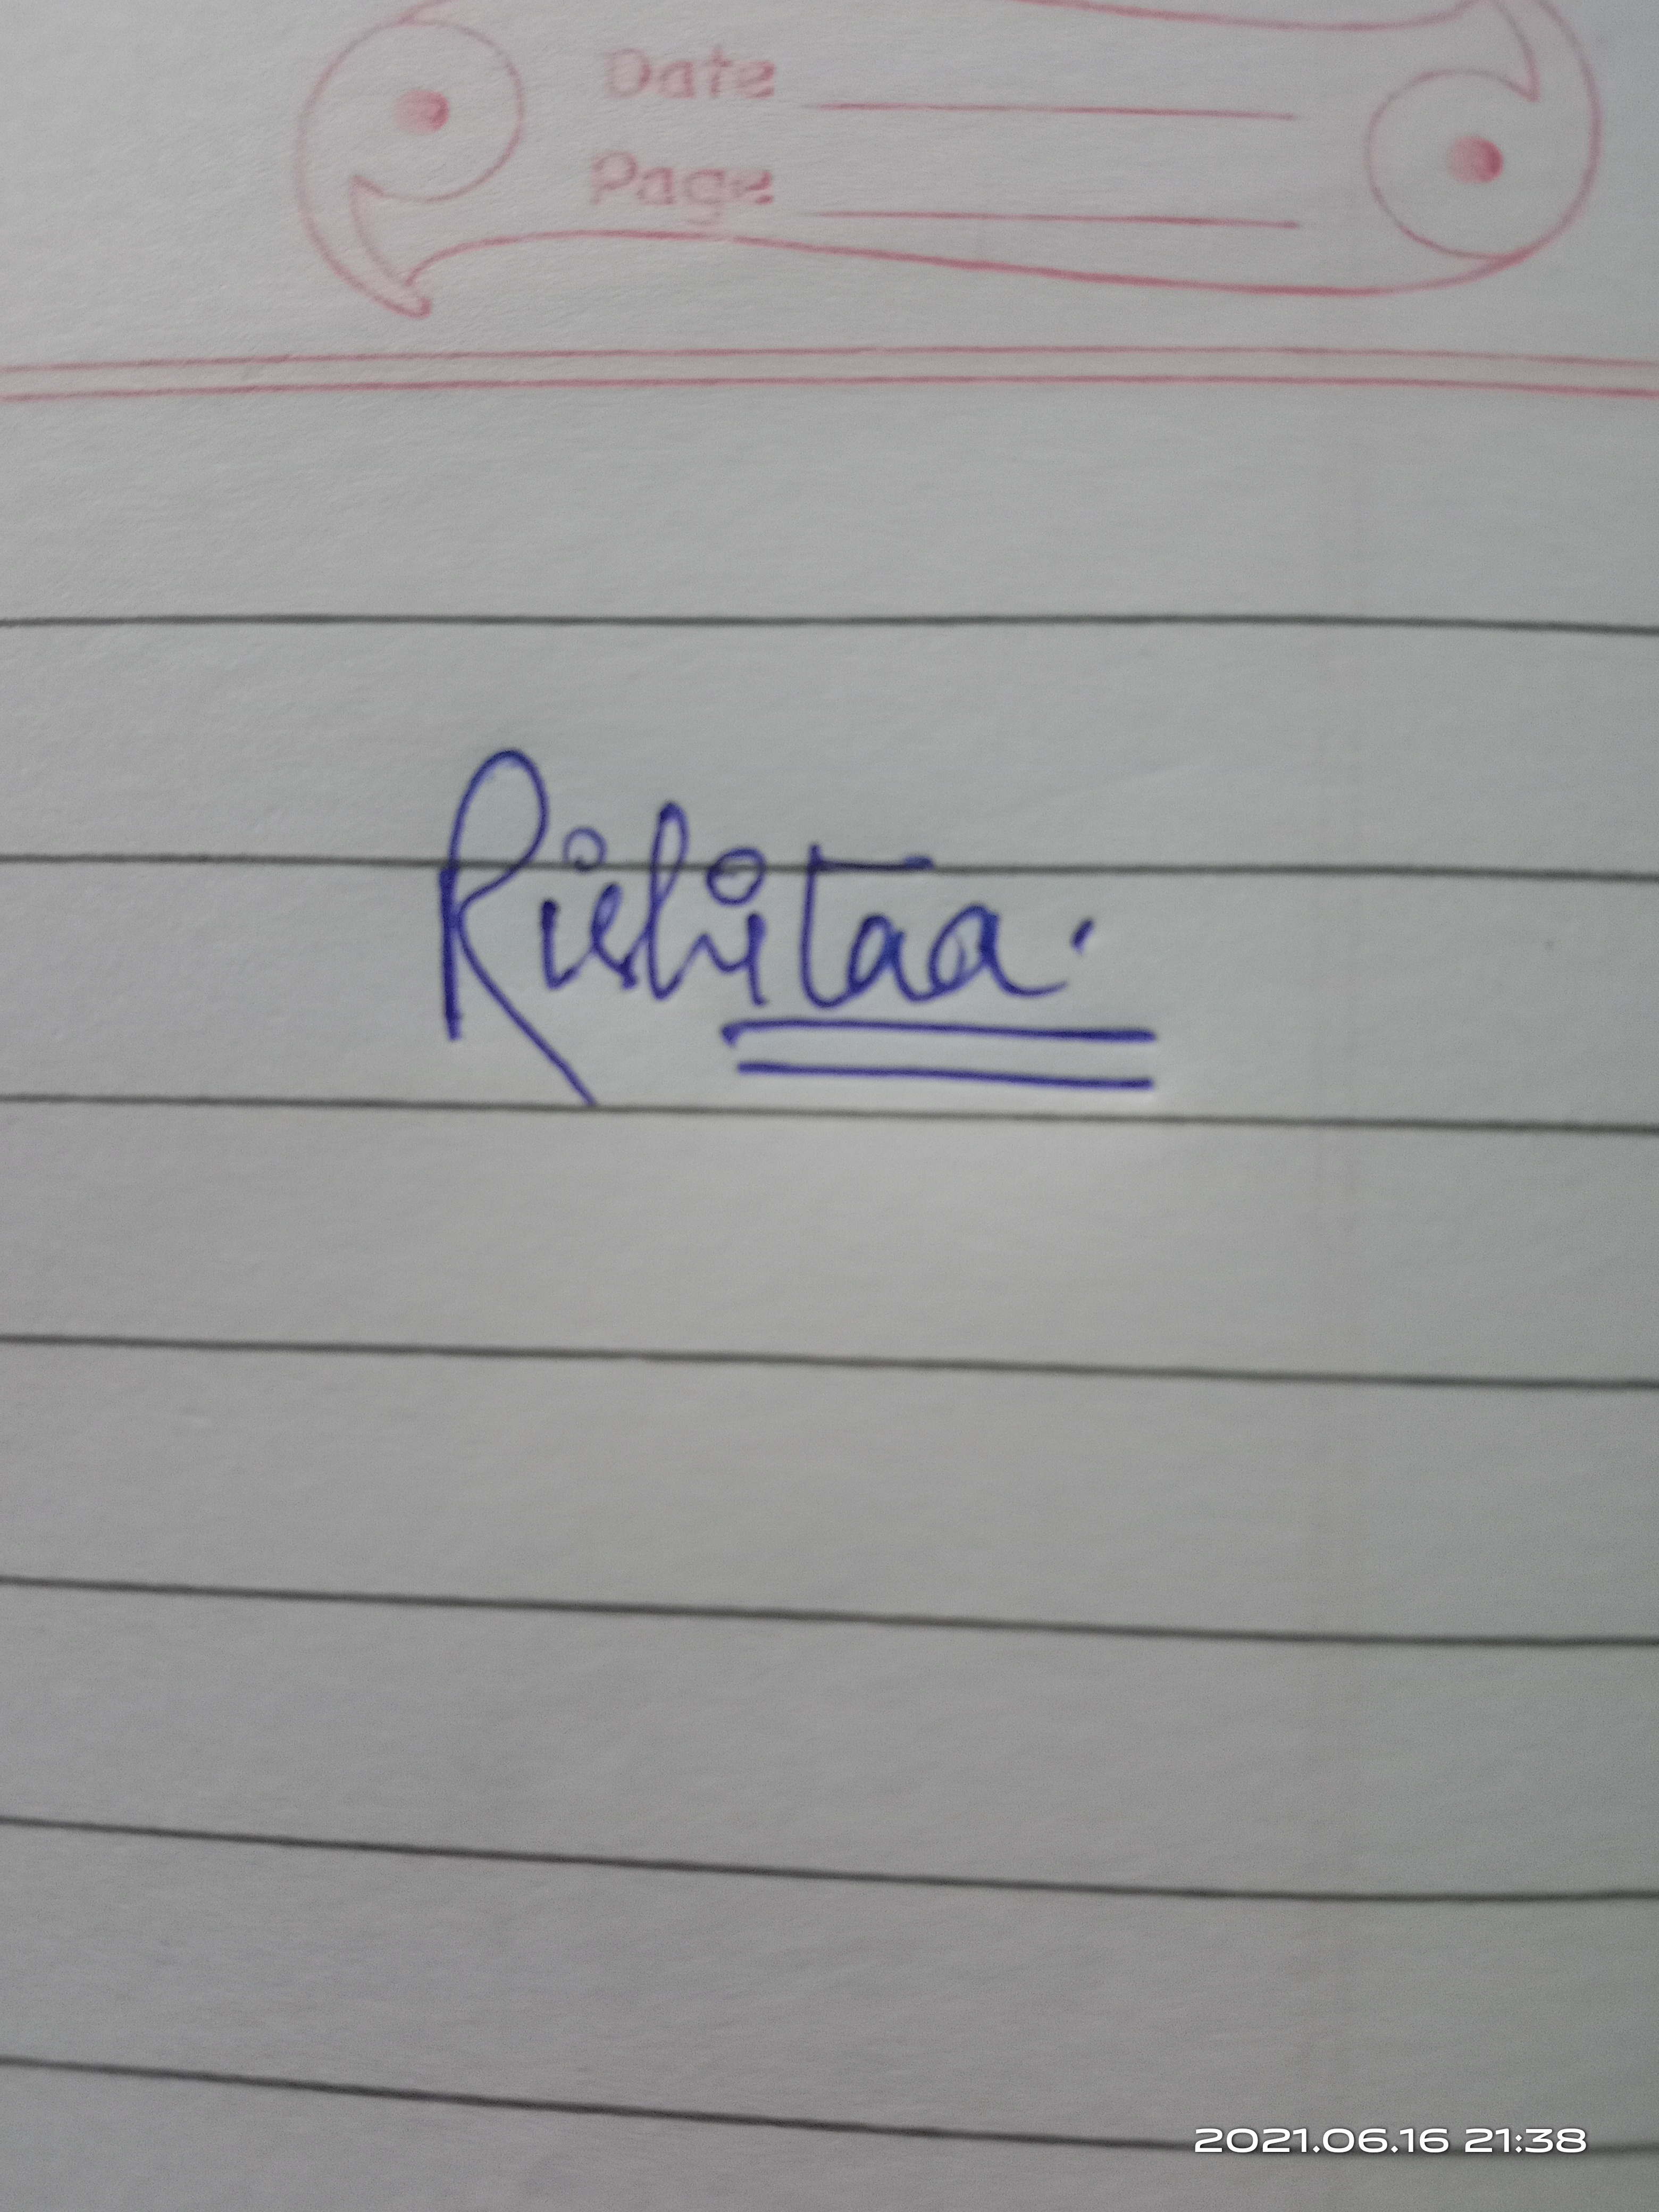 Date
Page
Rishitaa.
2021.06.16 21:38